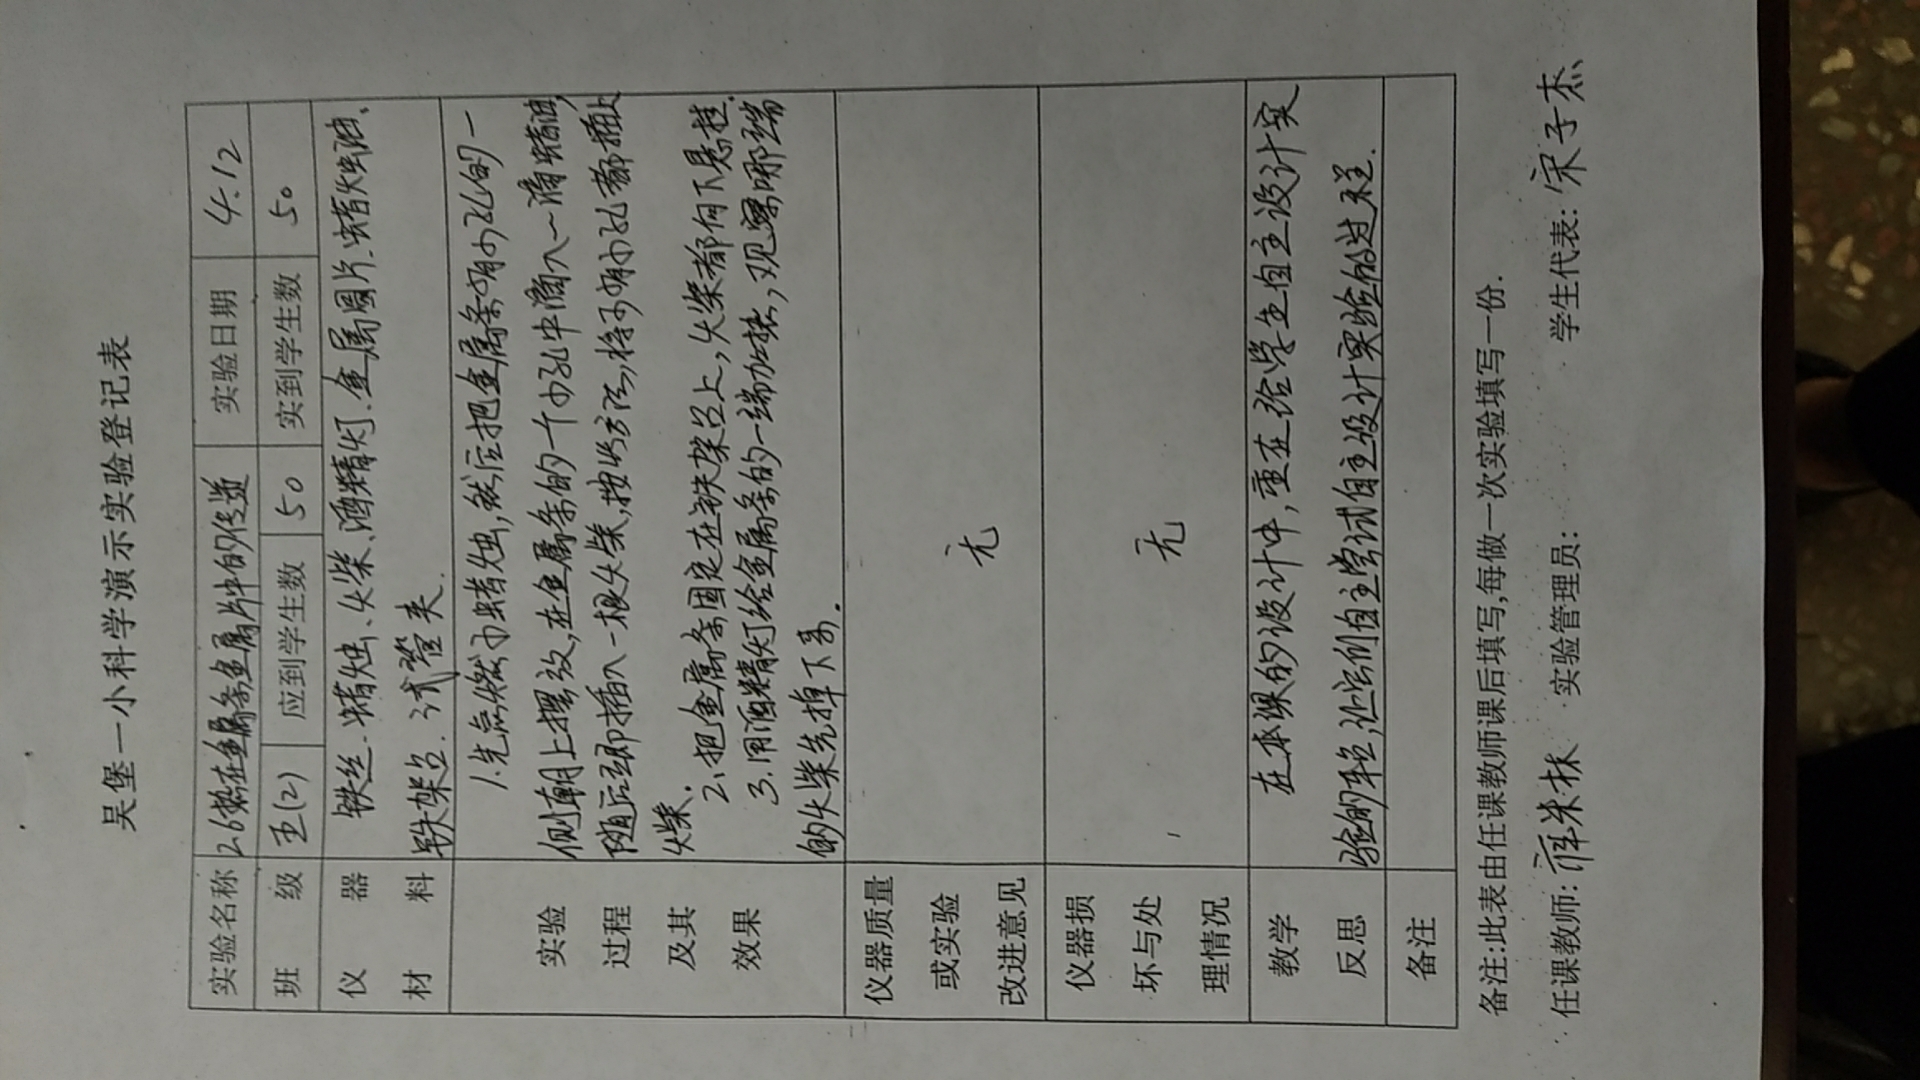 吴堡一小科学演示实验登记表
实验名称 2.6热在金属条金属片中的传递 实验日期 4.12
班 级 五(2) 应到学生数 50 实到学生数 50
仪 器 铁丝.蜡烛、火柴、酒精灯.金属圆片.蜡烛油、
材 料 铁架台.试管夹.
1.先点燃小蜡烛,然后把金属条有小孔的一
实验 侧朝上摆放,在金属条的一个小孔中滴入一滴蜡油,
过程 随后立即插入一根火柴,按此方法,将所有小孔都插上
及其 火柴.
2、把金属条固定在铁架台上,火柴都向下悬挂.
效果 3.用酒精灯给金属条的一端加热,观察哪端
的火柴先掉下来.
仪器质量
或实验 无
改进意见
仪器损
坏与处 无
理情况
教学 在本课的设计中,重在给学生自主设计实
反思 验的平台,让它们自主尝试自主设计实验的过程.
备注
备注:此表由任课教师课后填写,每做一次实验填写一份.
任课教师: 实验管理员: 学生代表: 宋子杰